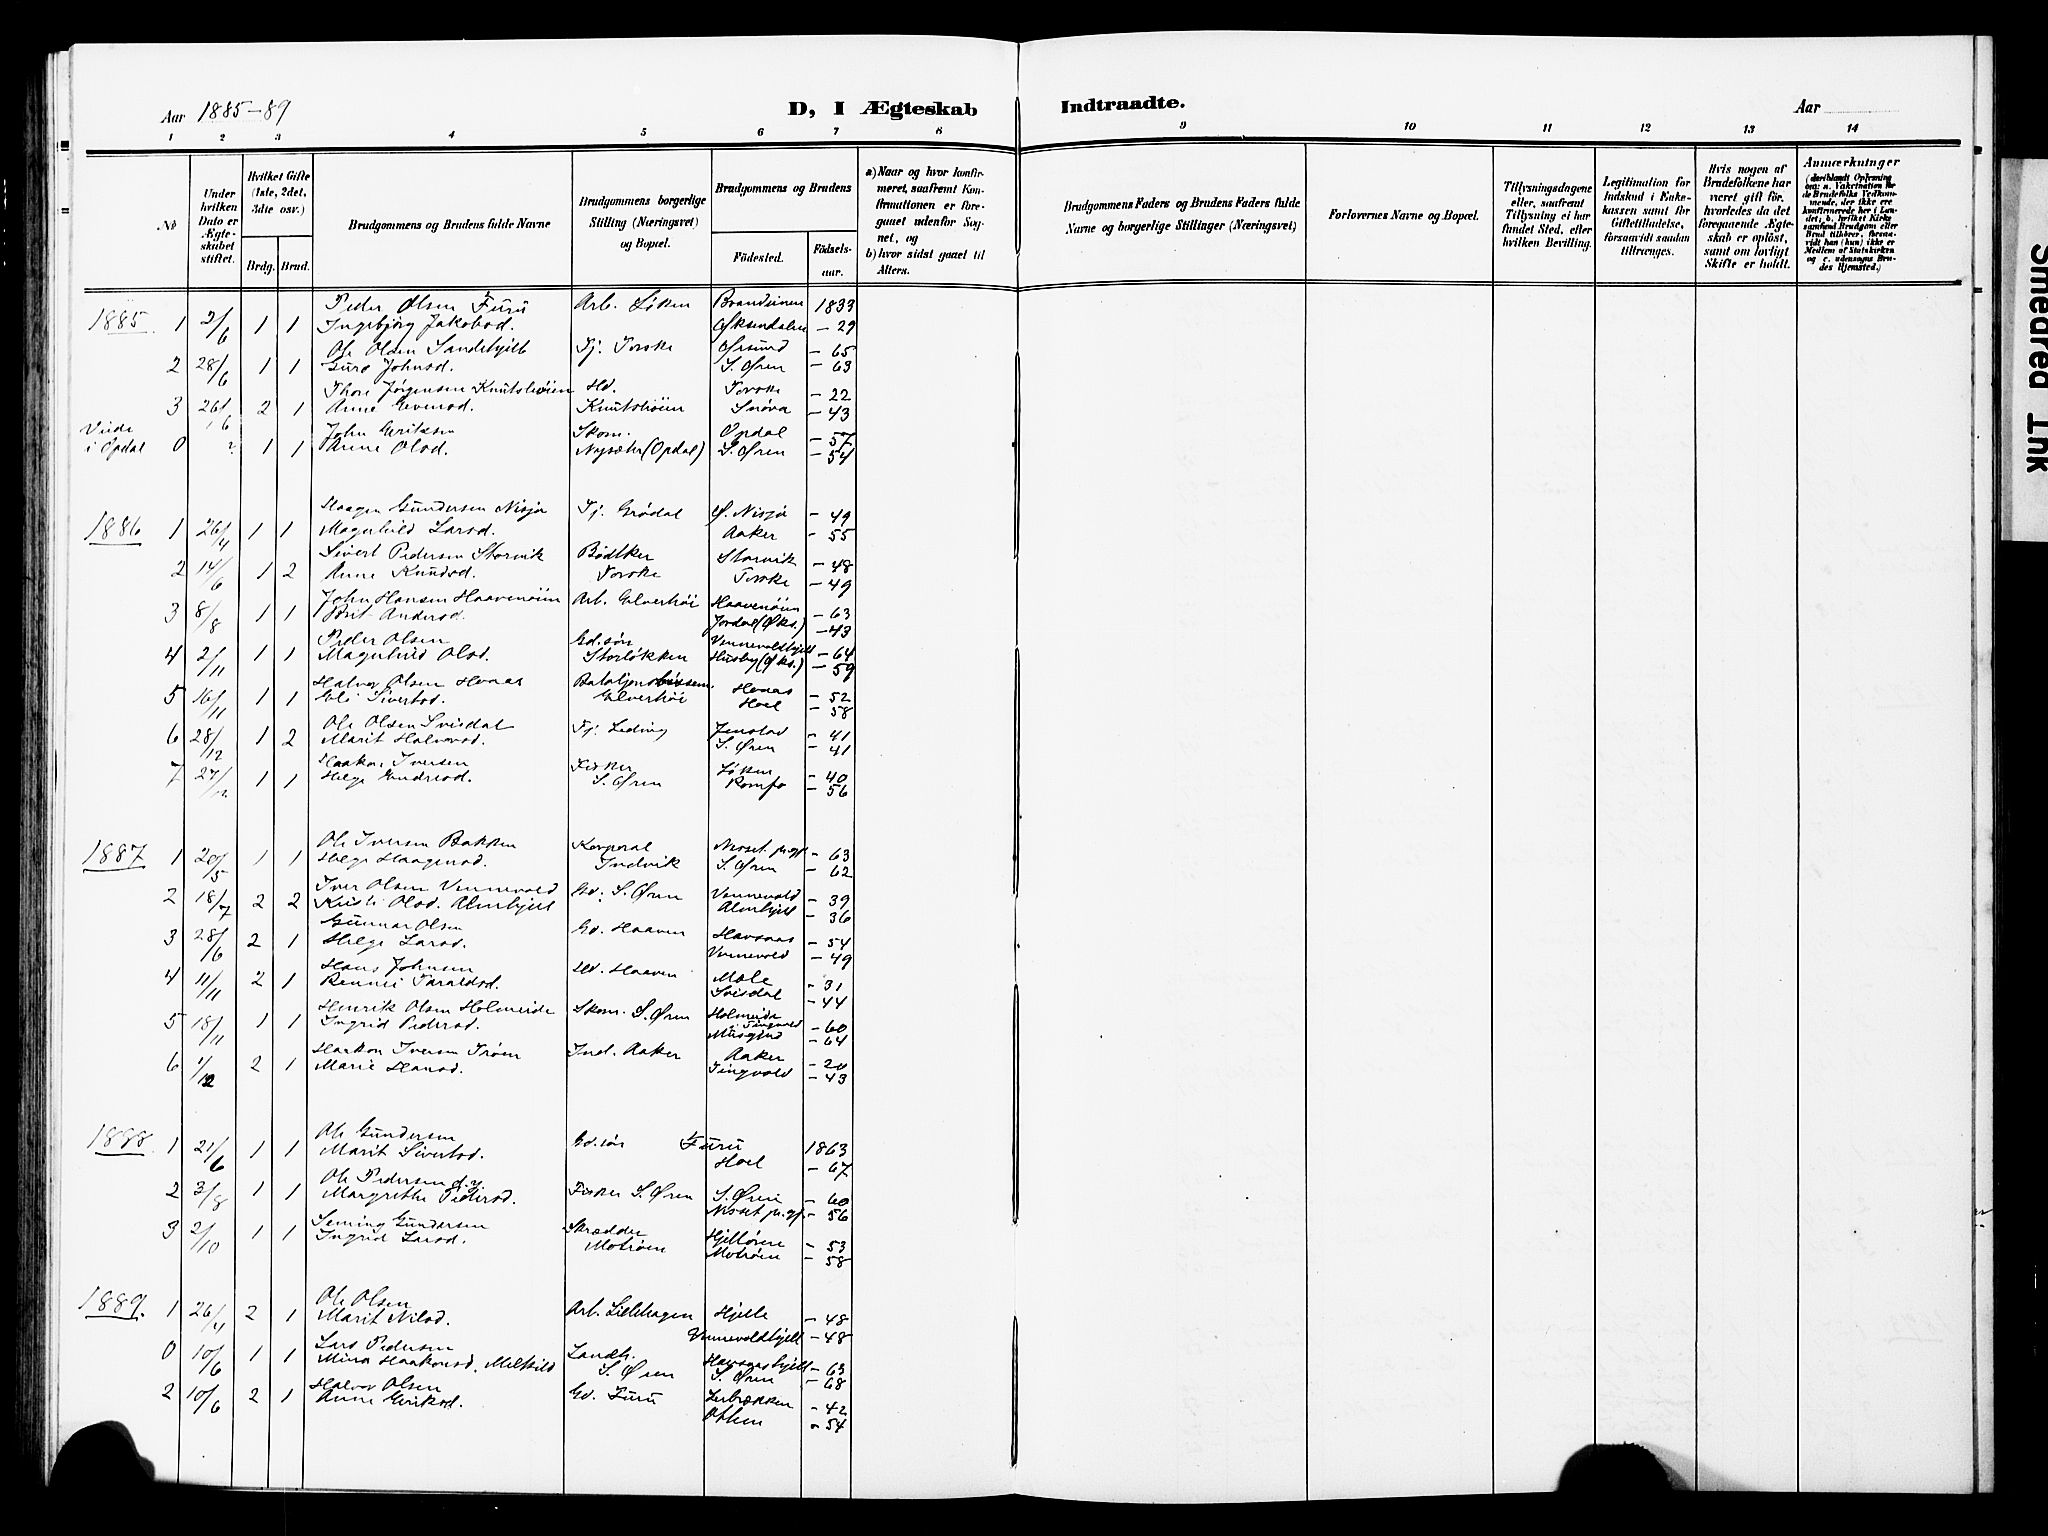 Aar 1885-89
D, I Ægteskab Indtraadte.
Aar
1 2 3 4 5 6 7 8 9 10 11 12 13 14
No
Under hvilken Dato er Ægteskabet stiftet.
Hvilket Gifte (1ste, 2det, 3dte osv.)
Brdg. Brud.
Brudgommens og Brudens fulde Navne
Brudgommens borgerlige Stilling (Næringsvei) og Bopæl.
Brudgommens og Brudens
Födested. Födselsaar.
a) Naar og hvor konfirmeret, saafremt Konfirmationen er foregaaet udenfor Sognet, og
b) hvor sidst gaaet til Alters.
Brudgommens Faders og Brudens Faders fulde Navne og borgerlige Stillinger (Næringsvei)
Forlovernes Navne og Bopæl.
Tillysningsdagene eller, saafremt Tillysning ei har fundet Sted, efter hvilken Bevilling.
Legitimation for Indskud i Enkekassen samt for Giftetilladelse, forsaavidt saadan tiltrænges.
Hvis nogen af Brudefolkene har været gift för, hvorledes da det foregaaende Ægteskab er oplöst, samt om lovligt Skifte er holdt.
Anmærkninger (deriblandt Oplysning om: a. Vakcination for de Brudefolks Vedkommende, der ikke ere konfirmerede her i Landet; b. hvilket Kirkesamfund Brudgom eller Brud tilhörer, forsaavidt han (hun) ikke er Medlem af Statskirken og c. udensogns Brudes Hjemsted.)
1885. 1 2/6 1 1 Peder Olsen Furu Arb. Løken Brandsinen 1833
Ingebjörg Jakobsd. Øksendalen - 29
2 28/6 1 1 Ole Olsen Sandehjell Fj. Torske Ørsund - 65
Guro Johnsd. S. Øren - 63
3 26/6 2 1 Thore Jørgensen Knutshöien Hd. Torske - 22
Anne Evensd. Knutshöien Snöva - 43
Viede i Opdal 0 ? 1 1 John Eriksen Skom. Opdal - 57
Anne Olsd. Nysæter (Opdal) S. Øren - 54
1886 1 26/4 1 1 Haagen Gundersen Nisja Fj. Grödal Ø. Nisja - 49
Magnhild Larsd. Aaker - 55
2 14/6 1 2 Sivert Pedersen Storvik Bødtker Storvik - 48
Anne Knudsd. Torske Torske - 49
3 8/8 1 1 John Hansen Haavenöien Arb. Elverhöi Haavenöien - 63
Brit Andersd. Jordal (Øks.) - 43
4 2/11 1 1 Peder Olsen Gd.sön Vennevoldhjell - 64
Magnhild Olsd. Storløkken Husby (Øks.) - 59
5 16/11 1 1 Halvor Olsen Hovas Hovas - 52
Eli Sivertsd. Elverhöi Hoel - 58
6 28/12 1 2 Ole Olsen Svisdal Fj. Leding Jenstad - 41
Marit Halvorsd. S. Øren - 41
7 27/12 1 1 Haakon Iversen Fisker Løken - 40
Helge Endresd. S. Øren Romfo - 56
1887 1 20/5 1 1 Ole Iversen Bakken Korporal Nisset p.gf. - 63
Helge Haagensd. Indvik S. Øren - 62
2 18/7 2 2 Iver Olsen Vennevold Gd. S. Øren Vennevold - 39
Kristi Olsd. Almhjell Almhjell - 36
3 28/6 2 1 Gunnar Olsen Gd. Haaven Havsaas - 54
Helge Larsd. Vennevold - 49
4 11/11 2 1 Hans Johnsen Hd. Haaven Mæle - 31
Rennei Taraldsd. Svisdal - 44
5 18/11 1 1 Henrik Olsen Holmeide Skom. S. Øren Holmeide i Tingvold - 60
Ingrid Pedersd. Musgjerd - 64
6 1/12 2 1 Haakon Iversen Tröen Ind. Aaker Aaker - 20
Marie Hansd. Tingvold - 43
1888. 1 21/6 1 1 Ole Gundersen Gd.sön Furu 1863
Marit Sivertsd. Hoel - 67
2 3/8 1 1 Ole Pedersen d.y. Fisker S. Øren S. Øren - 60
Margrethe Pedersd. Nisset p.gf. - 56
3 2/10 1 1 Seming Gundersen Skrædder Hjellören - 53
Ingrid Larsd. Motröen Motröen - 58
1889. 1 26/4 2 1 Ole Olsen Arb. Lillehagen Hjelle - 48
Marit Nilsd. Vennevoldhjell - 48
0 10/6 1 1 Lars Pedersen Landh. Havsaashjell - 63
Mina Haakonsd. Melkild S. Øren S. Øren - 68
2 10/6 2 1 Halvor Olsen Gd. Furu Lerbrækken - 42
Anne Eriksd. - 54
Smeared Ink